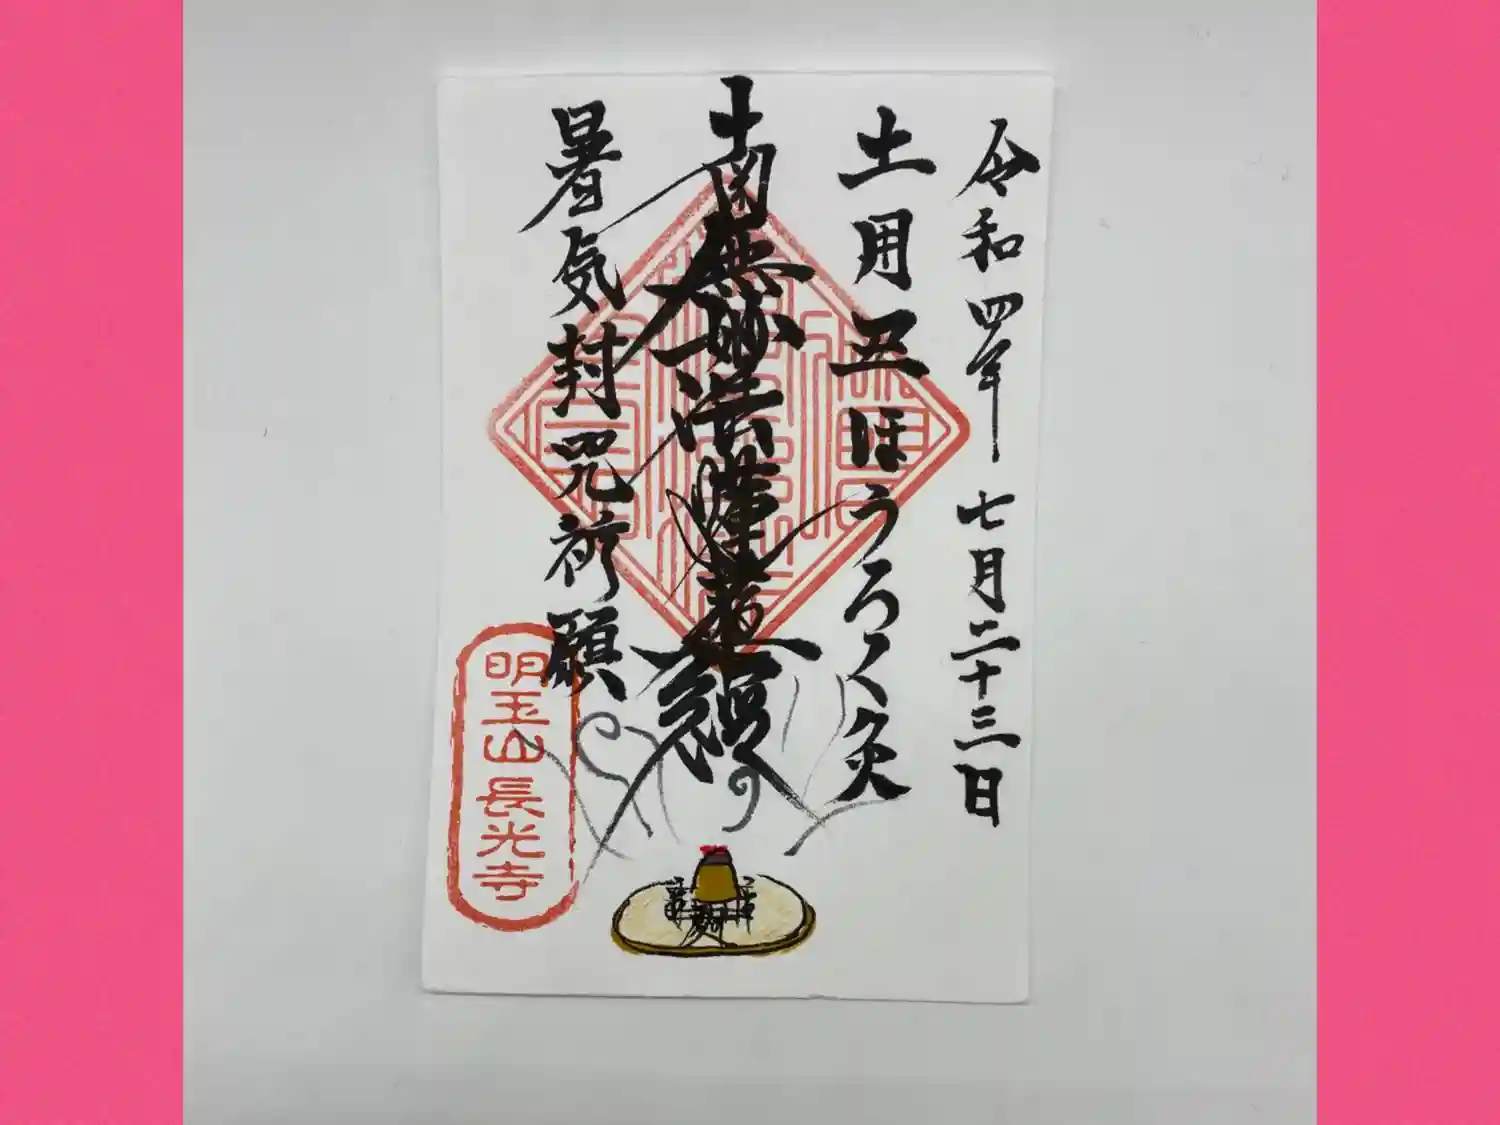 令和四年 七月二十三日
土用丑ほうろく灸
南無妙法蓮華経
暑気封呪祈願
明玉山長光寺